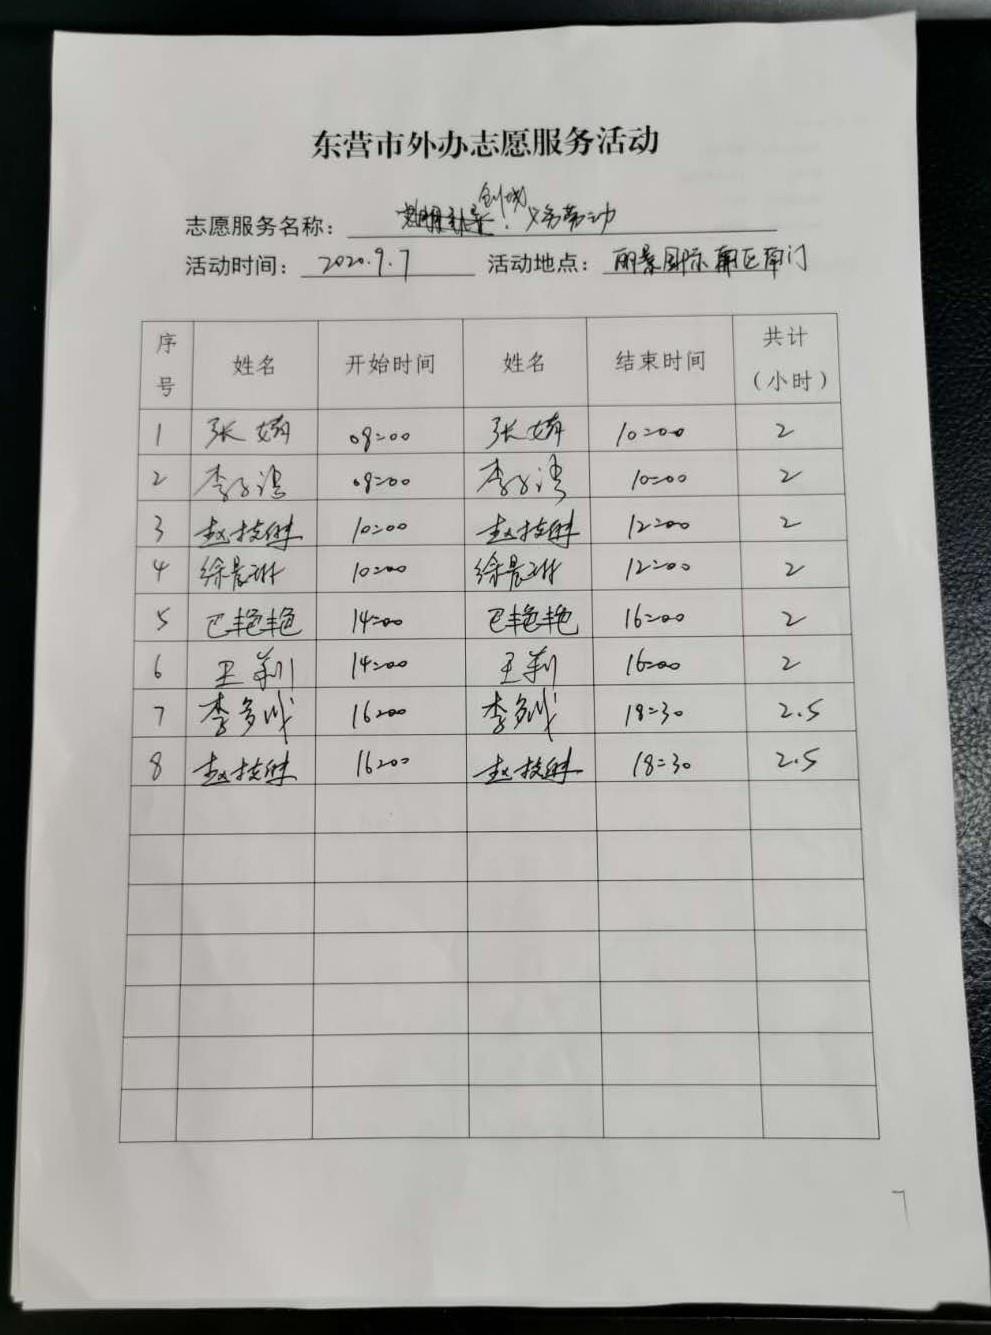 东营市外办志愿服务活动
志愿服务名称： 创城 义务劳动
活动时间： 2020.9.7 活动地点： 丽景国际南区南门
序号 姓名 开始时间 姓名 结束时间 共计（小时）
1 张婧 08:00 张婧 10:00 2
2 李 08:00 李 10:00 2
3 赵 10:00 赵 12:00 2
4 徐晨琳 10:00 徐晨琳 12:00 2
5 巴艳艳 14:00 巴艳艳 16:00 2
6 王莉 14:00 王莉 16:00 2
7 李多 16:00 李多 18:30 2.5
8 赵 16:00 赵 18:30 2.5
7